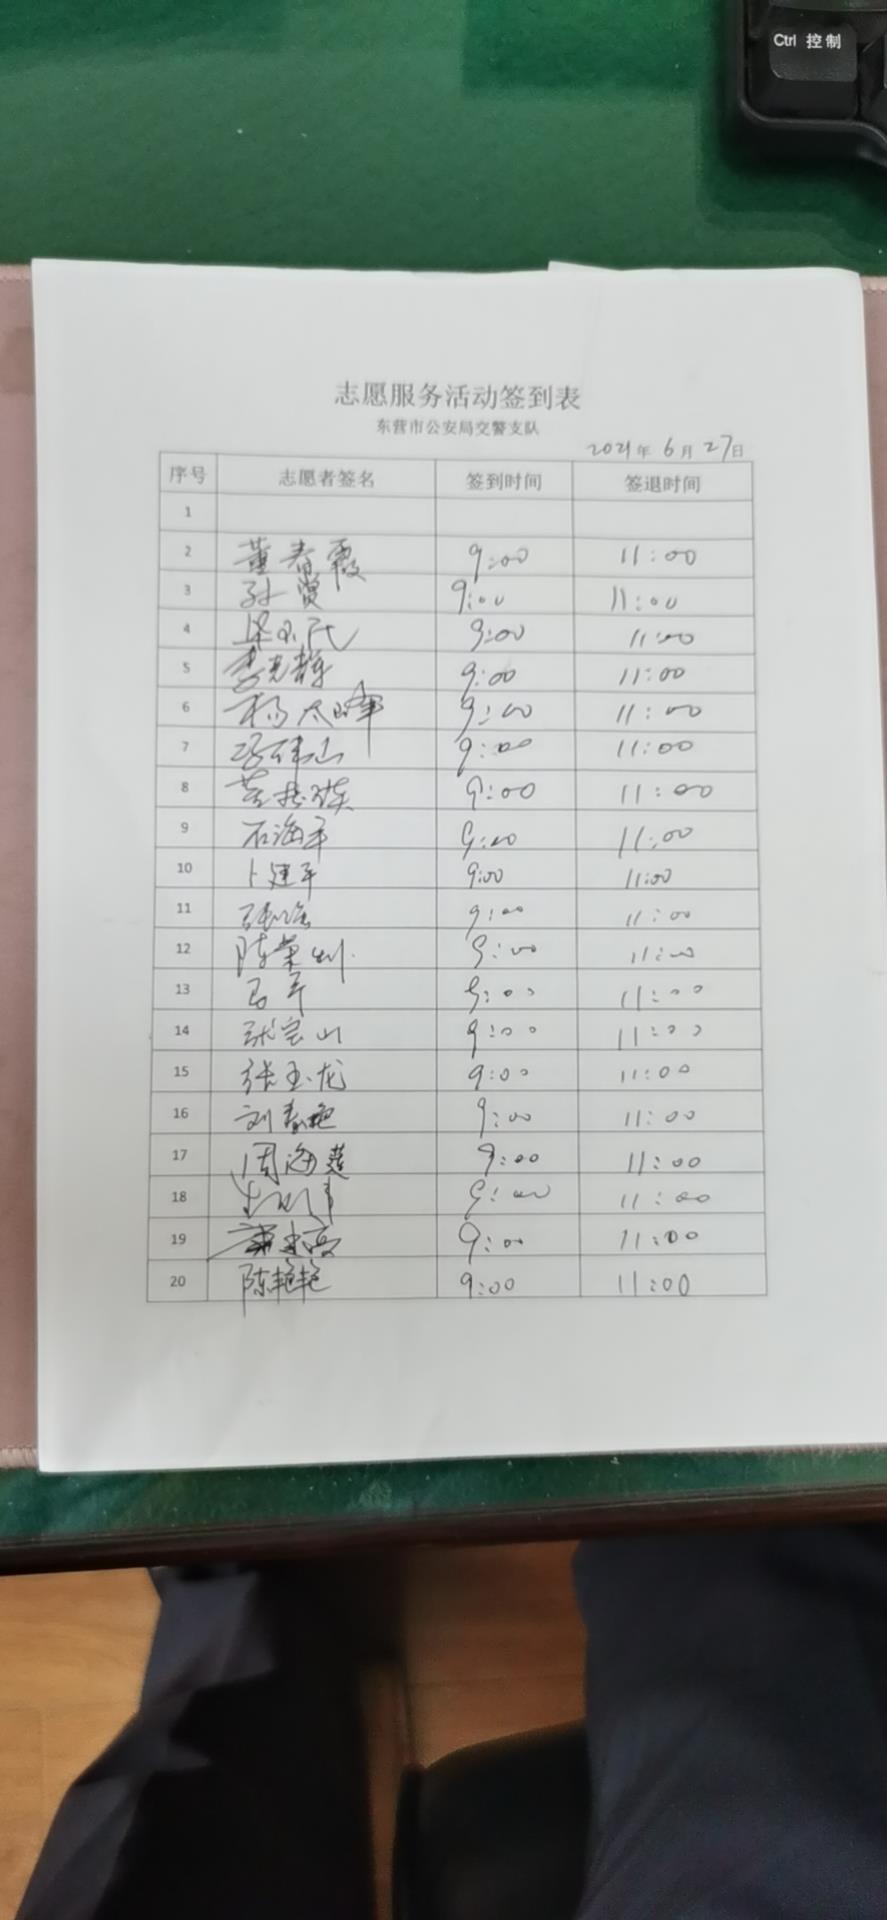 Ctrl 控制
志愿服务活动签到表
东营市公安局交警支队
2021年 6月 27日
序号 志愿者签名 签到时间 签退时间
1
2 董春霞 9:00 11:00
3 孙贤 9:00 11:00
4 9:00 11:00
5 李克静 9:00 11:00
6 杨太峰 9:00 11:00
7 9:00 11:00
8 9:00 11:00
9 石海军 9:00 11:00
10 卜建平 9:00 11:00
11 9:00 11:00
12 陈荣 9:00 11:00
13 9:00 11:00
14 张宝山 9:00 11:00
15 张玉龙 9:00 11:00
16 刘春艳 9:00 11:00
17 周海莲 9:00 11:00
18 9:00 11:00
19 9:00 11:00
20 陈艳艳 9:00 11:00